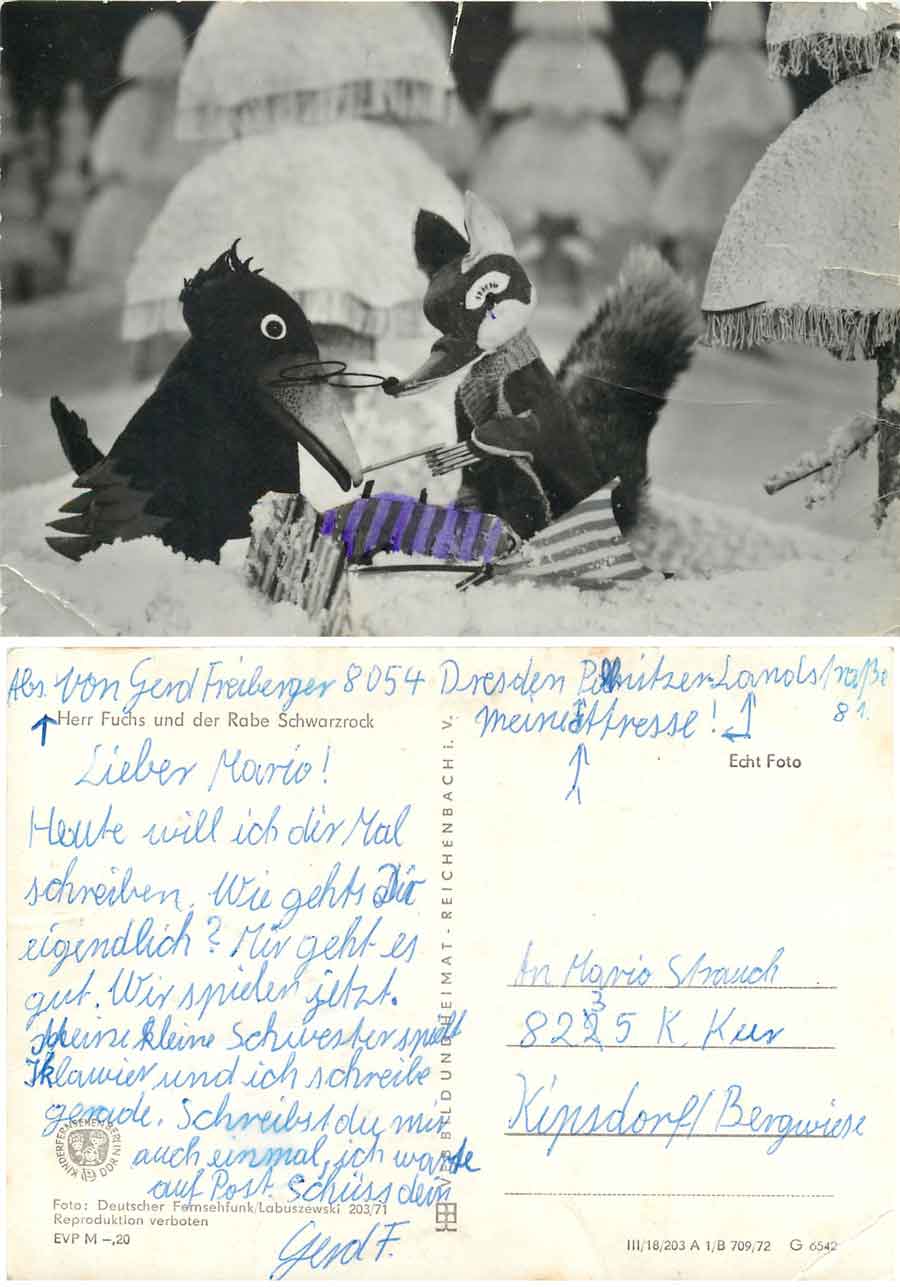 Abs. von Gerd Freiberger 8054 Dresden Pillnitzer-Landstraße 81.
Herr Fuchs und der Rabe Schwarzrock
meine Attresse!
Echt Foto
Lieber Mario!
Heute will ich dir Mal
schreiben. Wie gehts Dir
eigendlich? Mir geht es
gut. Wir spielen jetzt.
Meine kleine Schwester spielt
Klawier und ich schreibe
gerade. Schreibst du mir
auch einmal, ich warte
auf Post. Schüss dein
Gerd F.
KINDERFERNSEHEN BERLIN
DDR
Foto: Deutscher Fernsehfunk/Labuszewski 203/71
Reproduktion verboten
EVP M –,20
VEB BILD UND HEIMAT - REICHENBACH i. V.
An Mario Strauch
8235 K. Kur
Kipsdorf/Bergwiese
III/18/203 A 1/B 709/72 G 6542